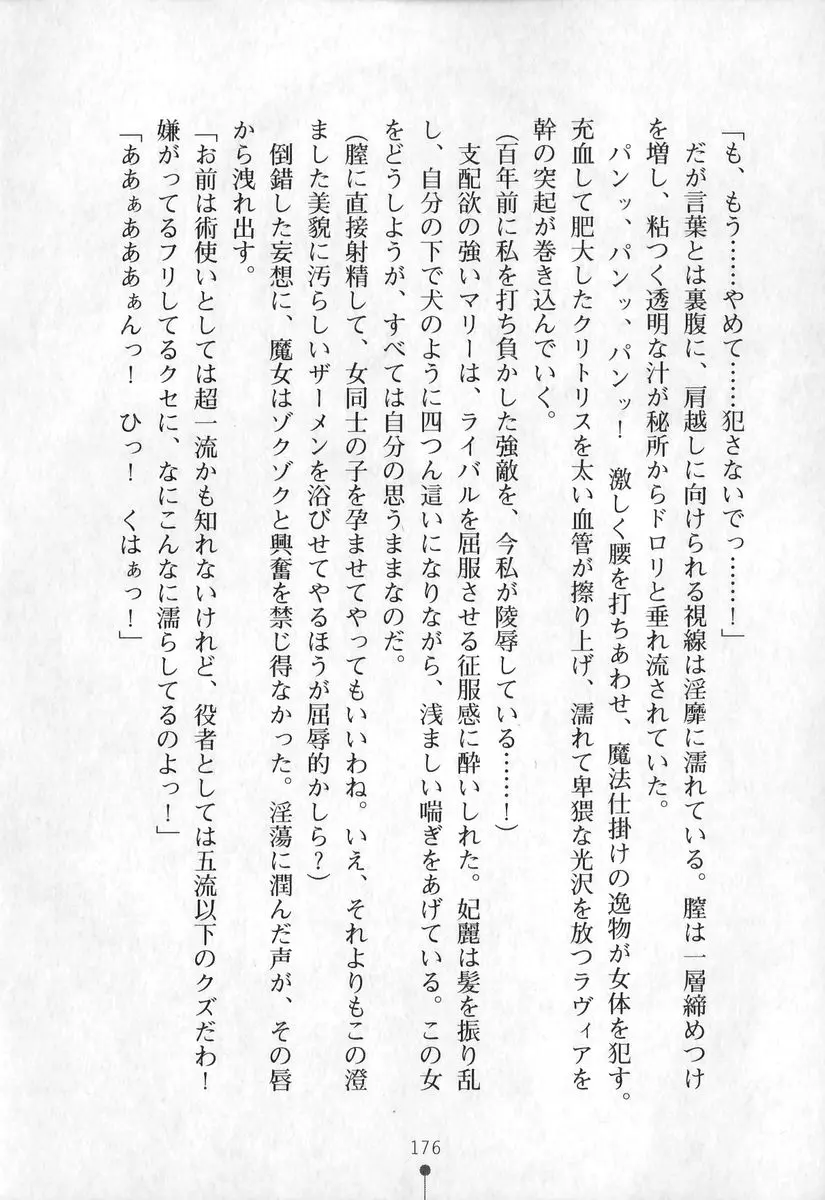 「も、もう……やめて……犯さないでっ……！」
だが言葉とは裏腹に、肩越しに向けられる視線は淫靡に濡れている。膣は一層締めつけ
を増し、粘つく透明な汁が秘所からドロリと垂れ流されていた。
パンッ、パンッ、パンッ！　激しく腰を打ちあわせ、魔法仕掛けの逸物が女体を犯す。
充血して肥大したクリトリスを太い血管が擦り上げ、濡れて卑猥な光沢を放つラヴィアを
幹の突起が巻き込んでいく。
（百年前に私を打ち負かした強敵を、今私が陵辱している……！）
支配欲の強いマリーは、ライバルを屈服させる征服感に酔いしれた。妃麗は髪を振り乱
し、自分の下で犬のように四つん這いになりながら、浅ましい喘ぎをあげている。この女
をどうしようが、すべては自分の思うままなのだ。
（膣に直接射精して、女同士の子を孕ませてやってもいいわね。いえ、それよりもこの澄
ました美貌に汚らしいザーメンを浴びせてやるほうが屈辱的かしら？）
倒錯した妄想に、魔女はゾクゾクと興奮を禁じ得なかった。淫蕩に潤んだ声が、その唇
から洩れ出す。
「お前は術使いとしては超一流かも知れないけれど、役者としては五流以下のクズだわ！
嫌がってるフリしてるクセに、なにこんなに濡らしてるのよっ！」
「ああぁあああぁんっ！　ひっ！　くはぁっ！」
176